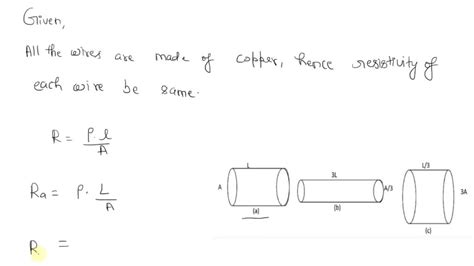 Given,
All the wires are made of copper, hence resistivity of
each wire be same.
R = ρ.l/A
Ra = ρ. L/A
R =
L
A
(a)
3L
A/3
(b)
L/3
3A
(c)